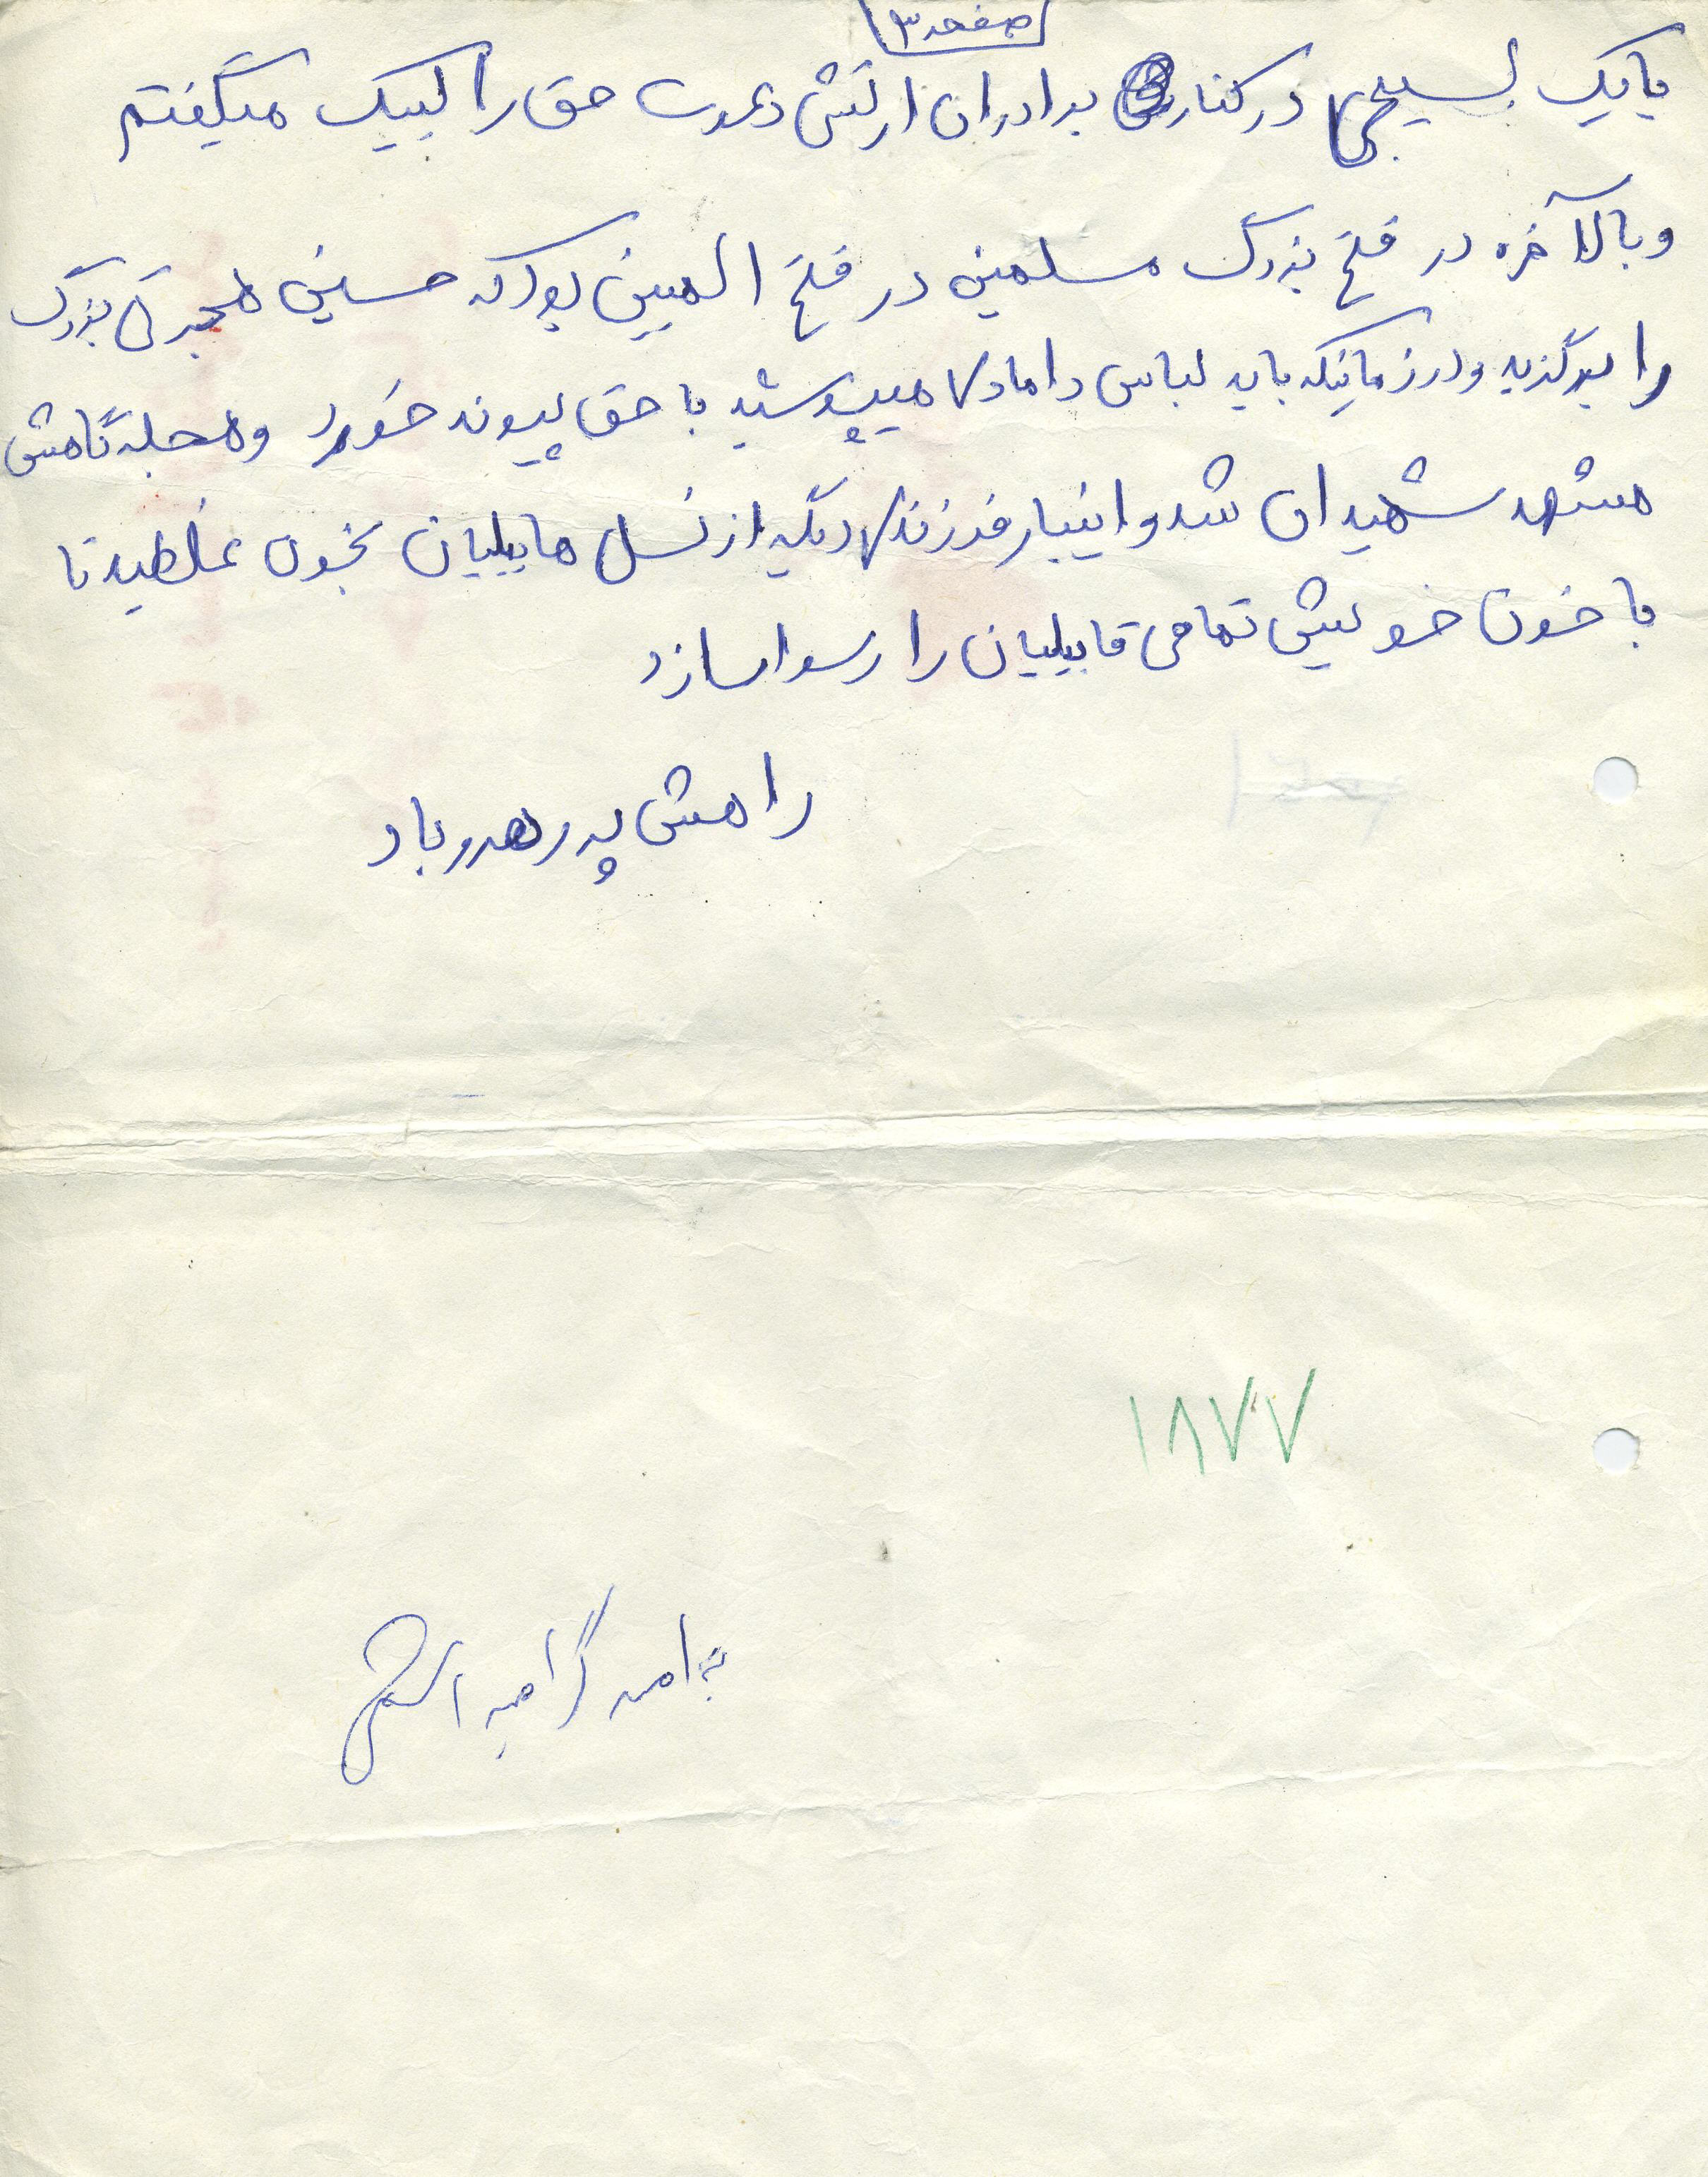 صفحه ۳
با یک بسیجی در کنار برادران ارتش دعوت حق را لبیک میگفتم
و بالآخره در فتح بزرگ مسلمین در فتح المبین بود که حسین هجرتی بزرگ
را برگزید و در زمانیکه باید لباس دامادی میپوشید با حق پیوند خورد و حجله گاهش
مشهد شهیدان شد و اینبار فرزندی دیگر از نسل هابیلیان بخون غلطید تا
با خون خویش تمامی قابیلیان را رسوا سازد
راهش پر رهرو باد
۱۸۷۷